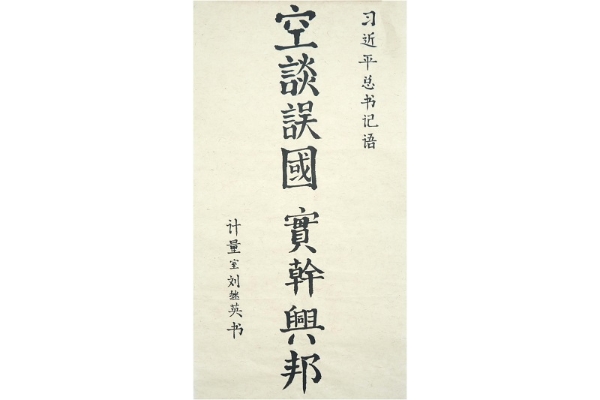 习近平总书记语
空談誤國 實幹興邦
计量室刘继英书